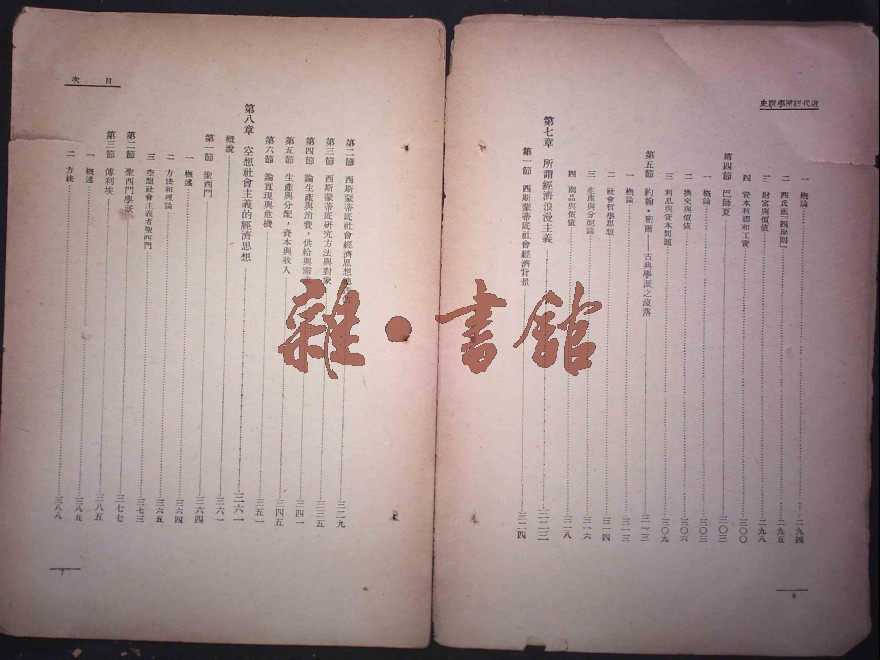 近代經濟學說史
一 概論 二九四
二 西氏底「四原則」 二九五
三 財富與價值 二九八
四 資本利潤和工資 三〇〇
第四節 巴師夏 三〇三
一 概論 三〇三
二 換交與價值 三〇六
三 利息與資本問題 三〇九
第五節 約翰・密爾——古典學派之沒落 三一三
一 概論 三一三
二 社會哲學思想 三一四
三 生產與分配論 三一六
四 商品與價值 三一八
第七章 所謂經濟浪漫主義 三二三
第一節 西斯蒙蒂底社會經濟背景 三二四
6
目次
第二節 西斯蒙蒂底社會經濟思想 三二九
第三節 西斯蒙蒂底研究方法與對象 三三五
第四節 論生產與消費，供給與需 三四一
第五節 生產與分配，資本與收入 三四五
第六節 論實現與危機 三五一
第八章 空想社會主義的經濟思想 三六一
概說 三六一
第一節 聖西門 三六四
一 概述 三六四
二 方法和理論 三六五
三 空想社會主義者聖西門 三七三
第二節 聖西門學派 三七七
第三節 傅利埃 三八五
一 概述 三八五
二 方法 三八八
7
雜・書館